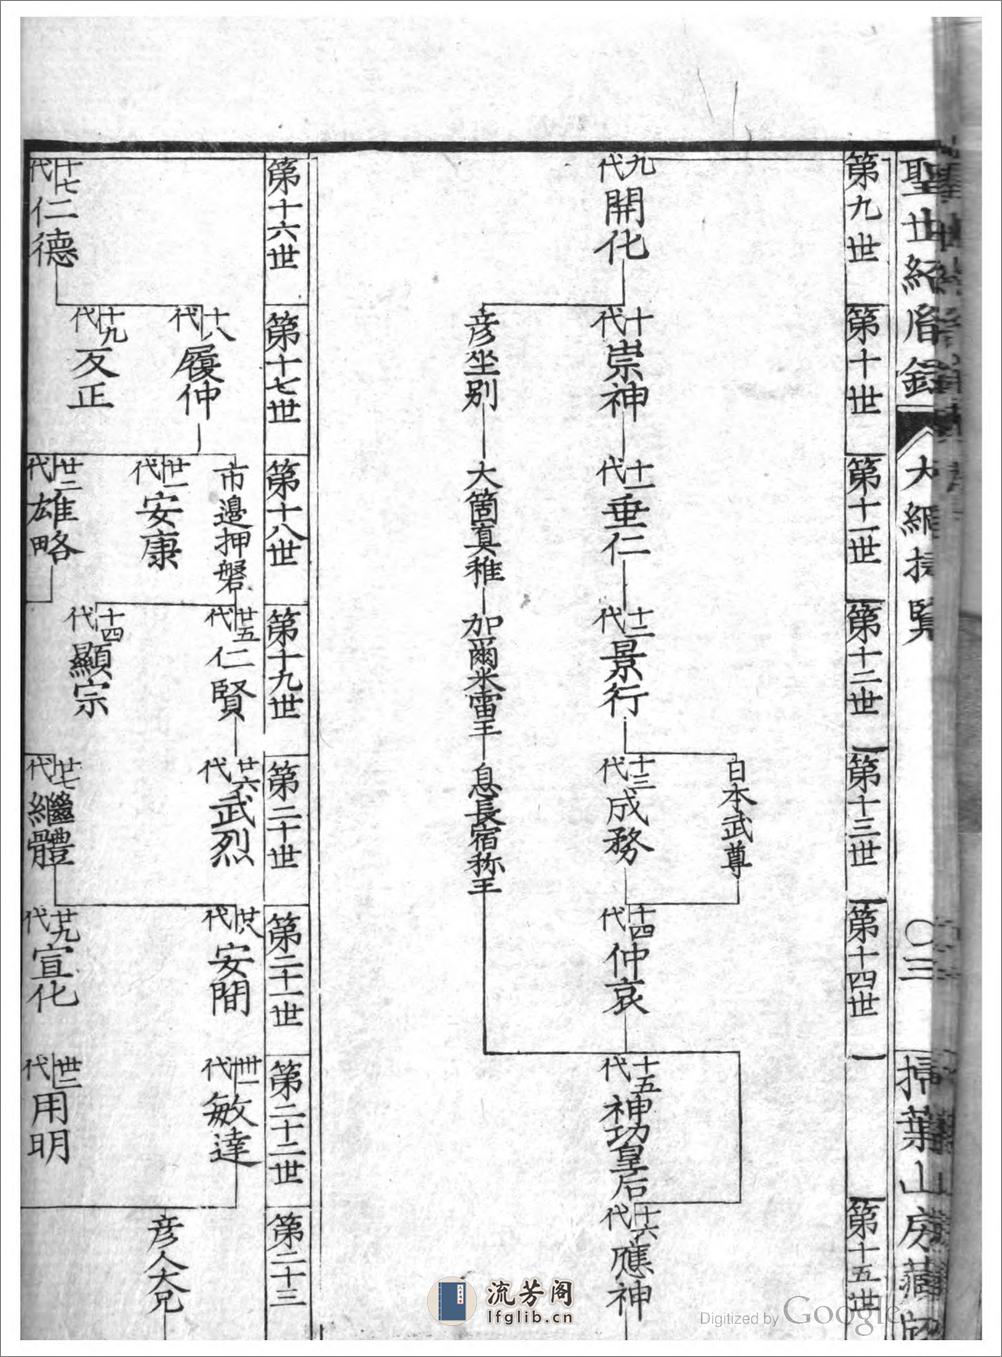 聖世紹㫺錄 大綱技覽 〇三 掃葉山房藏
第九世
第十世
第十一世
第十二世
第十三世
第十四世
第十五世
九代 開化
十代 崇神
彦坐別
十一代 垂仁
大箇真稚
十二代 景行
加爾米雷王
日本武尊
十三代 成務
息長宿称王
十四代 仲哀
十五代 神功皇后
十六代 應神
第十六世
第十七世
第十八世
第十九世
第二十世
第二十一世
第二十二世
第二十三
十七代 仁德
十八代 履仲
十九代 反正
市邊押磐
廿一代 安康
廿二代 雄略
廿五代 仁賢
十四代 顯宗
廿六代 武烈
廿七代 繼體
廿八代 安閒
廿九代 宣化
卅一代 敏達
卅二代 用明
彦人大兄
流芳阁
lfglib.cn
Digitized by Google